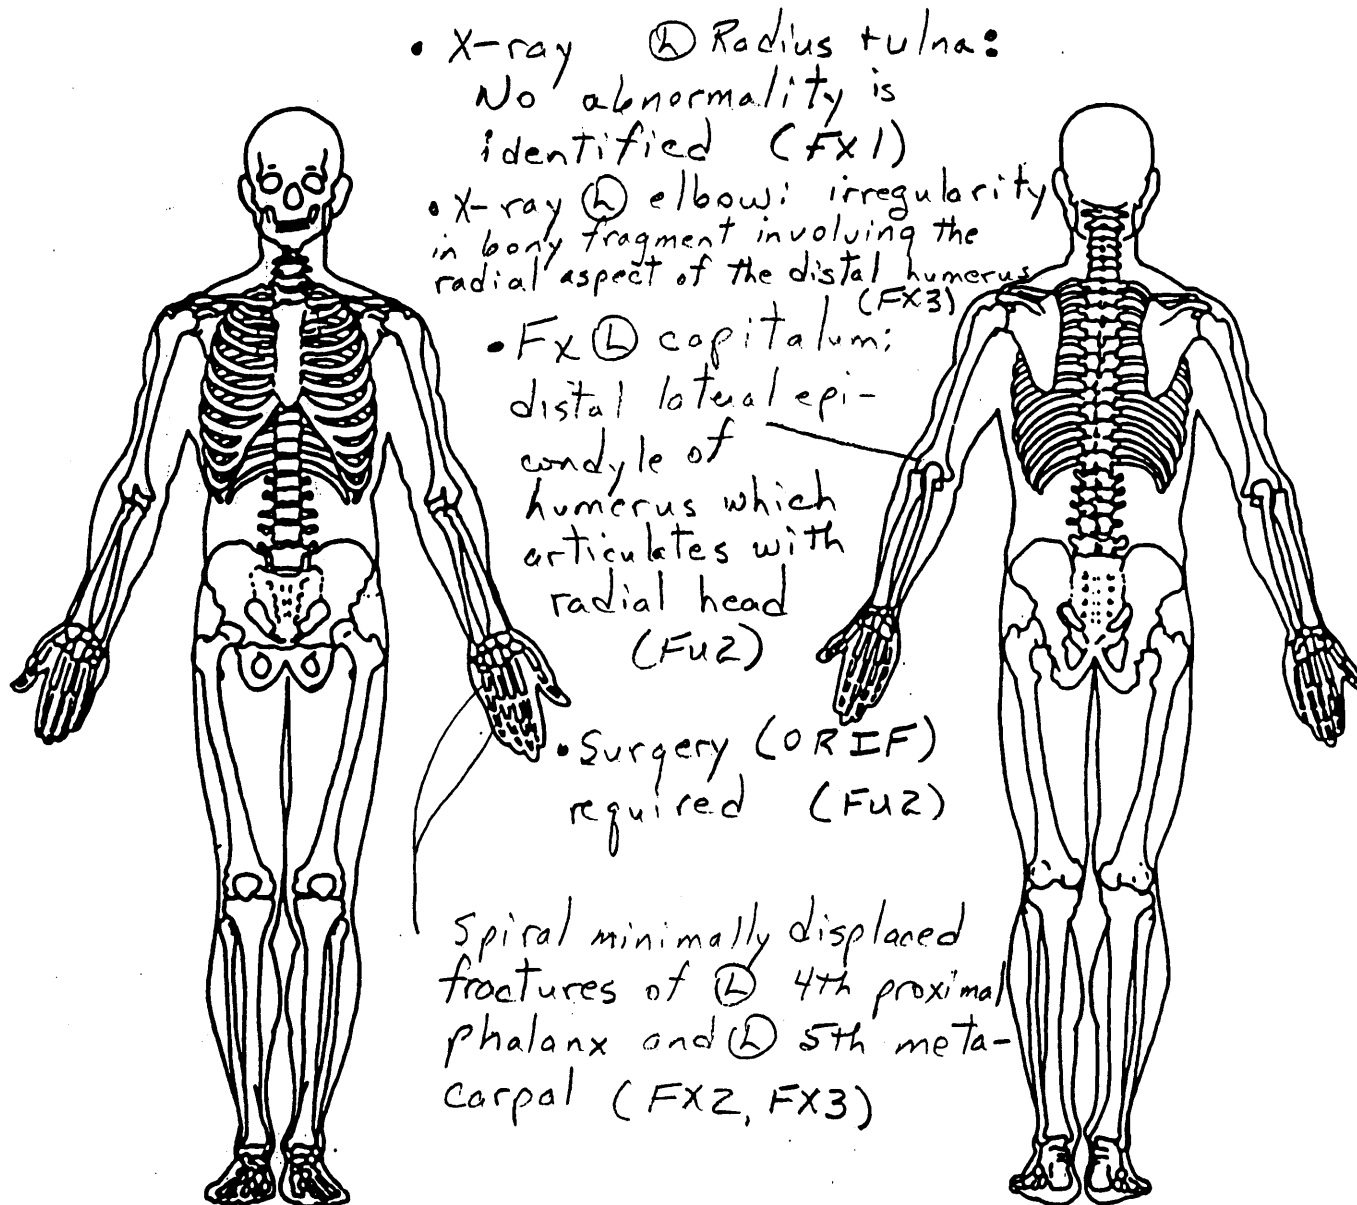 • X-ray Ⓛ Radius + ulna:
No abnormality is
identified (FX1)
• X-ray Ⓛ elbow: irregularity
in bony fragment involving the
radial aspect of the distal humerus
(FX3)
• Fx Ⓛ capitalum;
distal lateral epi-
condyle of
humerus which
articulates with
radial head
(FU2)
• Surgery (ORIF)
required (FU2)
Spiral minimally displaced
fractures of Ⓛ 4th proximal
phalanx and Ⓛ 5th meta-
carpal (FX2, FX3)